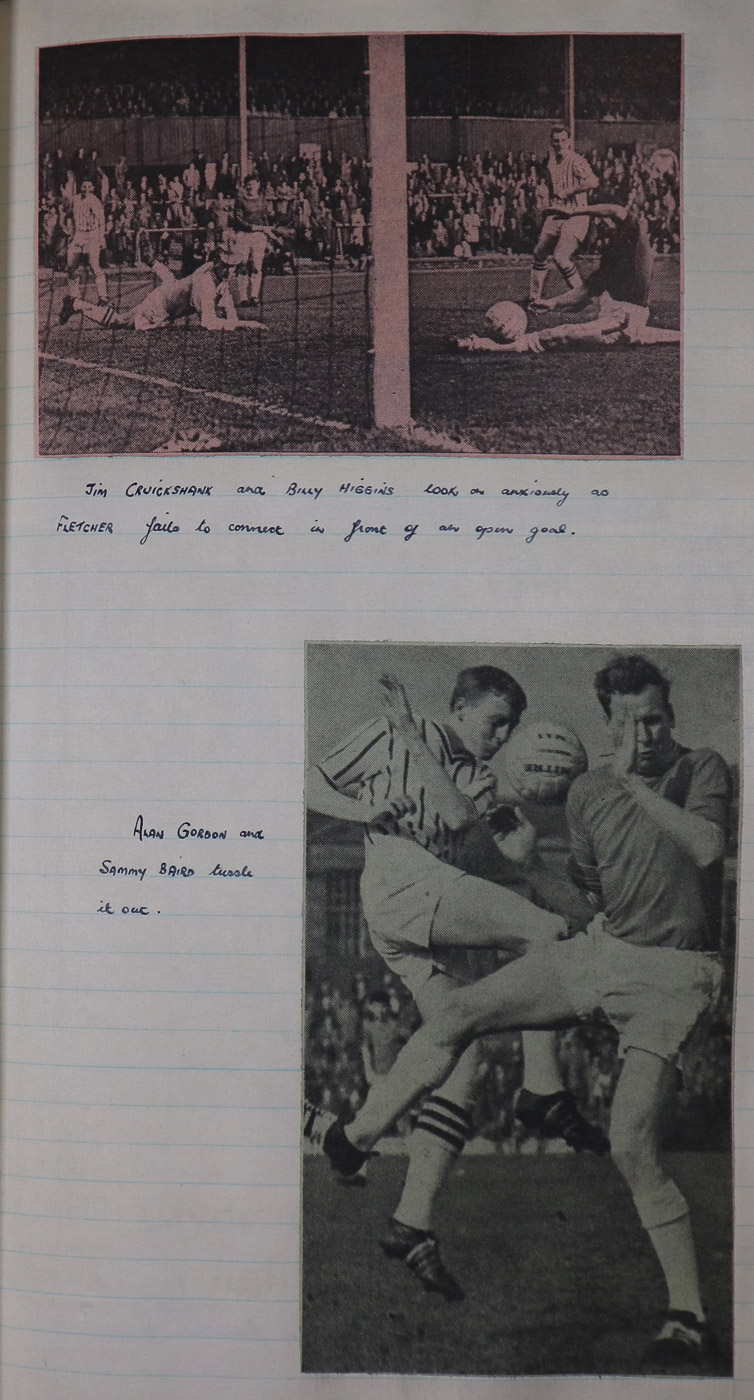 JIM CRUICKSHANK and BILLY HIGGINS look on anxiously as
FLETCHER fails to connect in front of an open goal.
ALAN GORDON and
SAMMY BAIRD tussle
it out.
MITRE